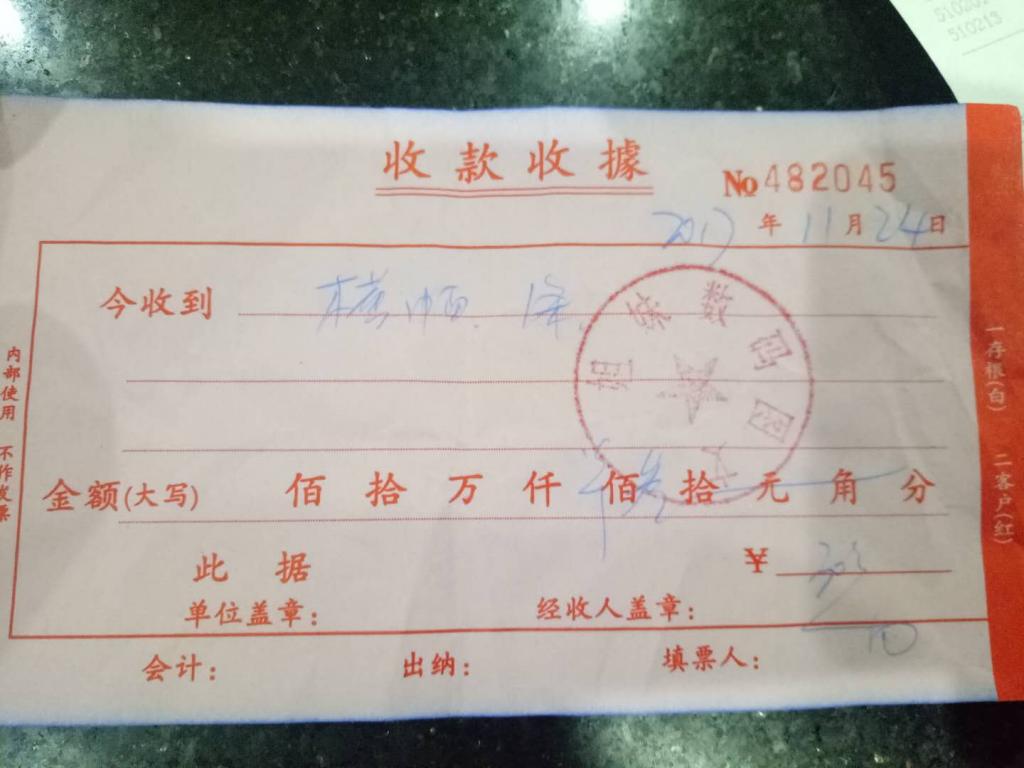 510213
收款收據
No 482045
2017年11月24日
今收到
金额(大写) 佰拾万仟佰拾元角分
此据 ¥
单位盖章: 经收人盖章:
会计: 出纳: 填票人:
内部使用 不作发票
一存根(白) 二客户(红)